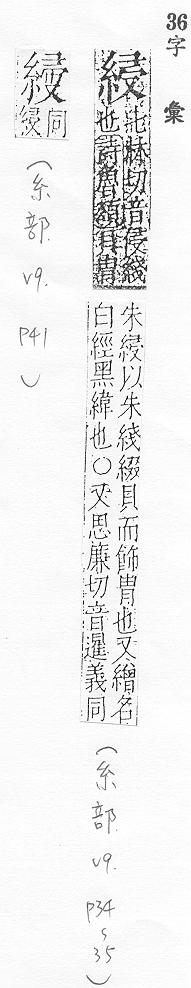 36字彙
綅
此林切音侵綫
也詩魯頌貝冑
朱綅以朱綫綴貝而飾冑也又繒名
白經黑緯也○又思廉切音暹義同
(糸部 v9. P34~35)
同
綅
(糸部 v9. P41)